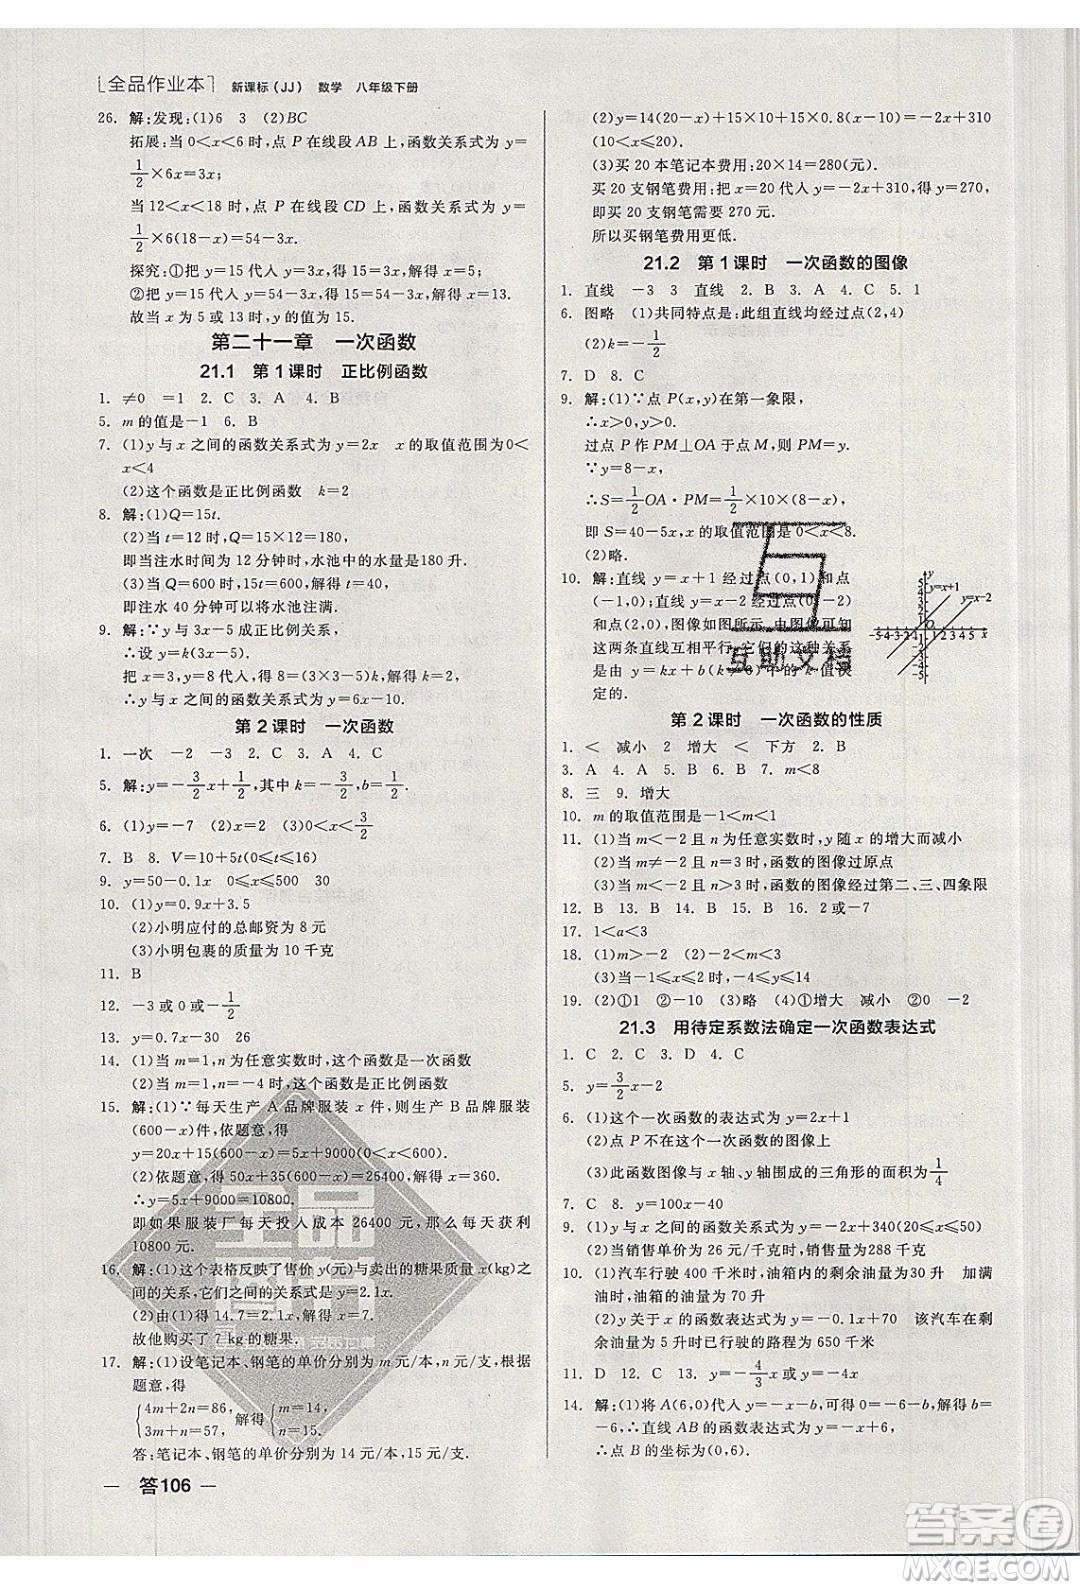 [全品作业本] 新课标(JJ) 数学 八年级下册
26. 解:发现:(1)6 3 (2)BC
拓展:当0<x<6时,点P在线段AB上,函数关系式为y=
1/2×6x=3x;
当12<x<18时,点P在线段CD上,函数关系式为y=
1/2×6(18-x)=54-3x.
探究:①把y=15代入y=3x,得15=3x,解得x=5;
②把y=15代入y=54-3x,得15=54-3x,解得x=13.
故当x为5或13时,y的值为15.
第二十一章 一次函数
21.1 第1课时 正比例函数
1. ≠0 =1 2. C 3. A 4. B
5. m的值是-1 6. B
7. (1)y与x之间的函数关系式为y=2x x的取值范围为0<
x<4
(2)这个函数是正比例函数 k=2
8. 解:(1)Q=15t.
(2)当t=12时,Q=15×12=180,
即当注水时间为12分钟时,水池中的水量是180升.
(3)当Q=600时,15t=600,解得t=40,
即注水40分钟可将水池注满.
9. 解:∵y与3x-5成正比例关系,
∴设y=k(3x-5).
把x=3,y=8代入,得8=k(3×3-5),解得k=2,
∴y与x之间的函数关系式为y=6x-10.
第2课时 一次函数
1. 一次 -2 -3 2. C 3. A 4. C
5. 解:y=-3/2x+1/2,是一次函数,其中k=-3/2,b=1/2.
6. (1)y=-7 (2)x=0 (3)0<k<3/2
7. B 8. V=10+5t(0≤t≤16)
9. y=50-0.1x 0≤x≤500 30
10. (1)y=0.9x+3.5
(2)小明应付的总邮资为8元
(3)小明包裹的质量为10千克
11. B
12. -3或0或-1/2
13. y=0.7x-30 26
14. (1)当m=1,n为任意实数时,这个函数是一次函数
(2)当m=1,n=-4时,这个函数是正比例函数
15. 解:(1)∵每天生产A品牌服装x件,则生产B品牌服装
(600-x)件,依题意,得
y=20x+15(600-x)=5x+9000(0<x<600).
(2)依题意,得50x+35(600-x)=26400,解得x=360.
∴y=5x+9000=10800.
即如果服装厂每天投入成本26400元,那么每天获利
10800元.
16. 解:(1)这个表格反映了售价y(元)与卖出的糖果质量x(kg)之
间的关系,它们之间的关系式是y=2.1x.
(2)由(1)得14.7=2.1x,解得x=7.
故他购买了7kg的糖果.
17. 解:(1)设笔记本、钢笔的单价分别为m元/本,n元/支,根据
题意,得
{4m+2n=86, 解得{m=14,
3m+4n=57+
答:笔记本、钢笔的单价分别为14元/本,15元/支.
— 答106 —
(2)y=14×(20-x)+15×10+15×0.8(x-10)=-2x+310
(10<x≤20).
(3)买20本笔记本费用:20×14=280(元).
买20支钢笔费用:把x=20代入y=-2x+310,得y=270,
即买20支钢笔需要270元.
所以买钢笔费用更低.
21.2 第1课时 一次函数的图像
1. 直线 -3 3 直线 2. B 3. A 4. C 5. 1
6. 图略 (1)共同特点是:此组直线均经过点(2,4)
(2)k=-1/2
7. D 8. C
9. 解:(1)∵点P(x,y)在第一象限,
∴x>0,y>0.
过点P作PM⊥OA于点M,则PM=y.
∵y=8-x,
∴S=1/2OA·PM=1/2×10×(8-x),
即S=40-5x,x的取值范围是0<x<8.
(2)略.
10. 解:直线y=x+1经过点(0,1)和点
(-1,0);直线y=x-2经过点(0,-2)
和点(2,0),图像如图所示,由图像可知
这两条直线互相平行,它们的这种关系
是由y=kx+b(k≠0)中的k值决
定的.
y y=x+1
y=x-2
第2课时 一次函数的性质
1. < 减小 2 增大 < 下方 2. B
3. A 4. B 5. A 6. B 7. m<8
8. 三 9. 增大
10. m的取值范围是-1<m<1
11. (1)当m<-2且n为任意实数时,y随x的增大而减小
(2)当m≠-2且n=3时,函数的图像过原点
(3)当m<-2且n<3时,函数的图像经过第二、三、四象限
12. B 13. B 14. B 15. B 16. 2或-7
17. 1<a<3
18. (1)m>-2 (2)-2<m<3
(3)当-1≤x≤2时,-4≤y≤14
19. (2)①1 ②-10 (3)略 (4)①增大 减小 ②0 -2
21.3 用待定系数法确定一次函数表达式
1. C 2. C 3. A 4. B
5. y=3/2x-2
6. (1)这个一次函数的表达式为y=2x+1
(2)点P不在这个一次函数的图像上
(3)此函数图像与x轴、y轴围成的三角形的面积为1/4
7. C 8. y=100x-40
9. (1)y与x之间的函数关系式为y=-2x+340(20≤x≤50)
(2)当销售单价为26元时,销售量为288千克
10. (1)汽车行驶400千米时,油箱内的剩余油量为30升 加满
油时,油箱的油量为70升
(2)y关于x的函数关系式为y=-0.1x+70 该汽车在剩
余油量为5升时已行驶的路程为650千米
11. D 12. C 13. y=-4/3x或y=-4x
14. 解:(1)将A(6,0)代入y=-x-b,得-6-b=0,解得b=
-6,∴直线AB的函数表达式为y=-x+6,
∴点B的坐标为(0,6).
互助文档
答案圈
MXQE.COM